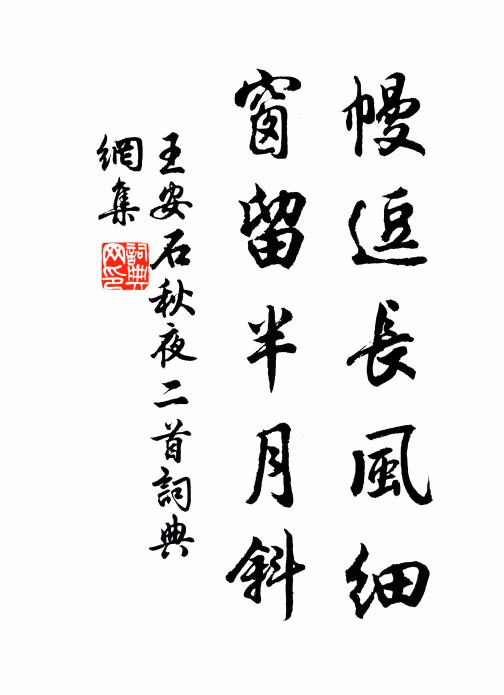 幔逗長風細
窗留半月斜
王安石秋夜二首詞典
網集
詞典網印